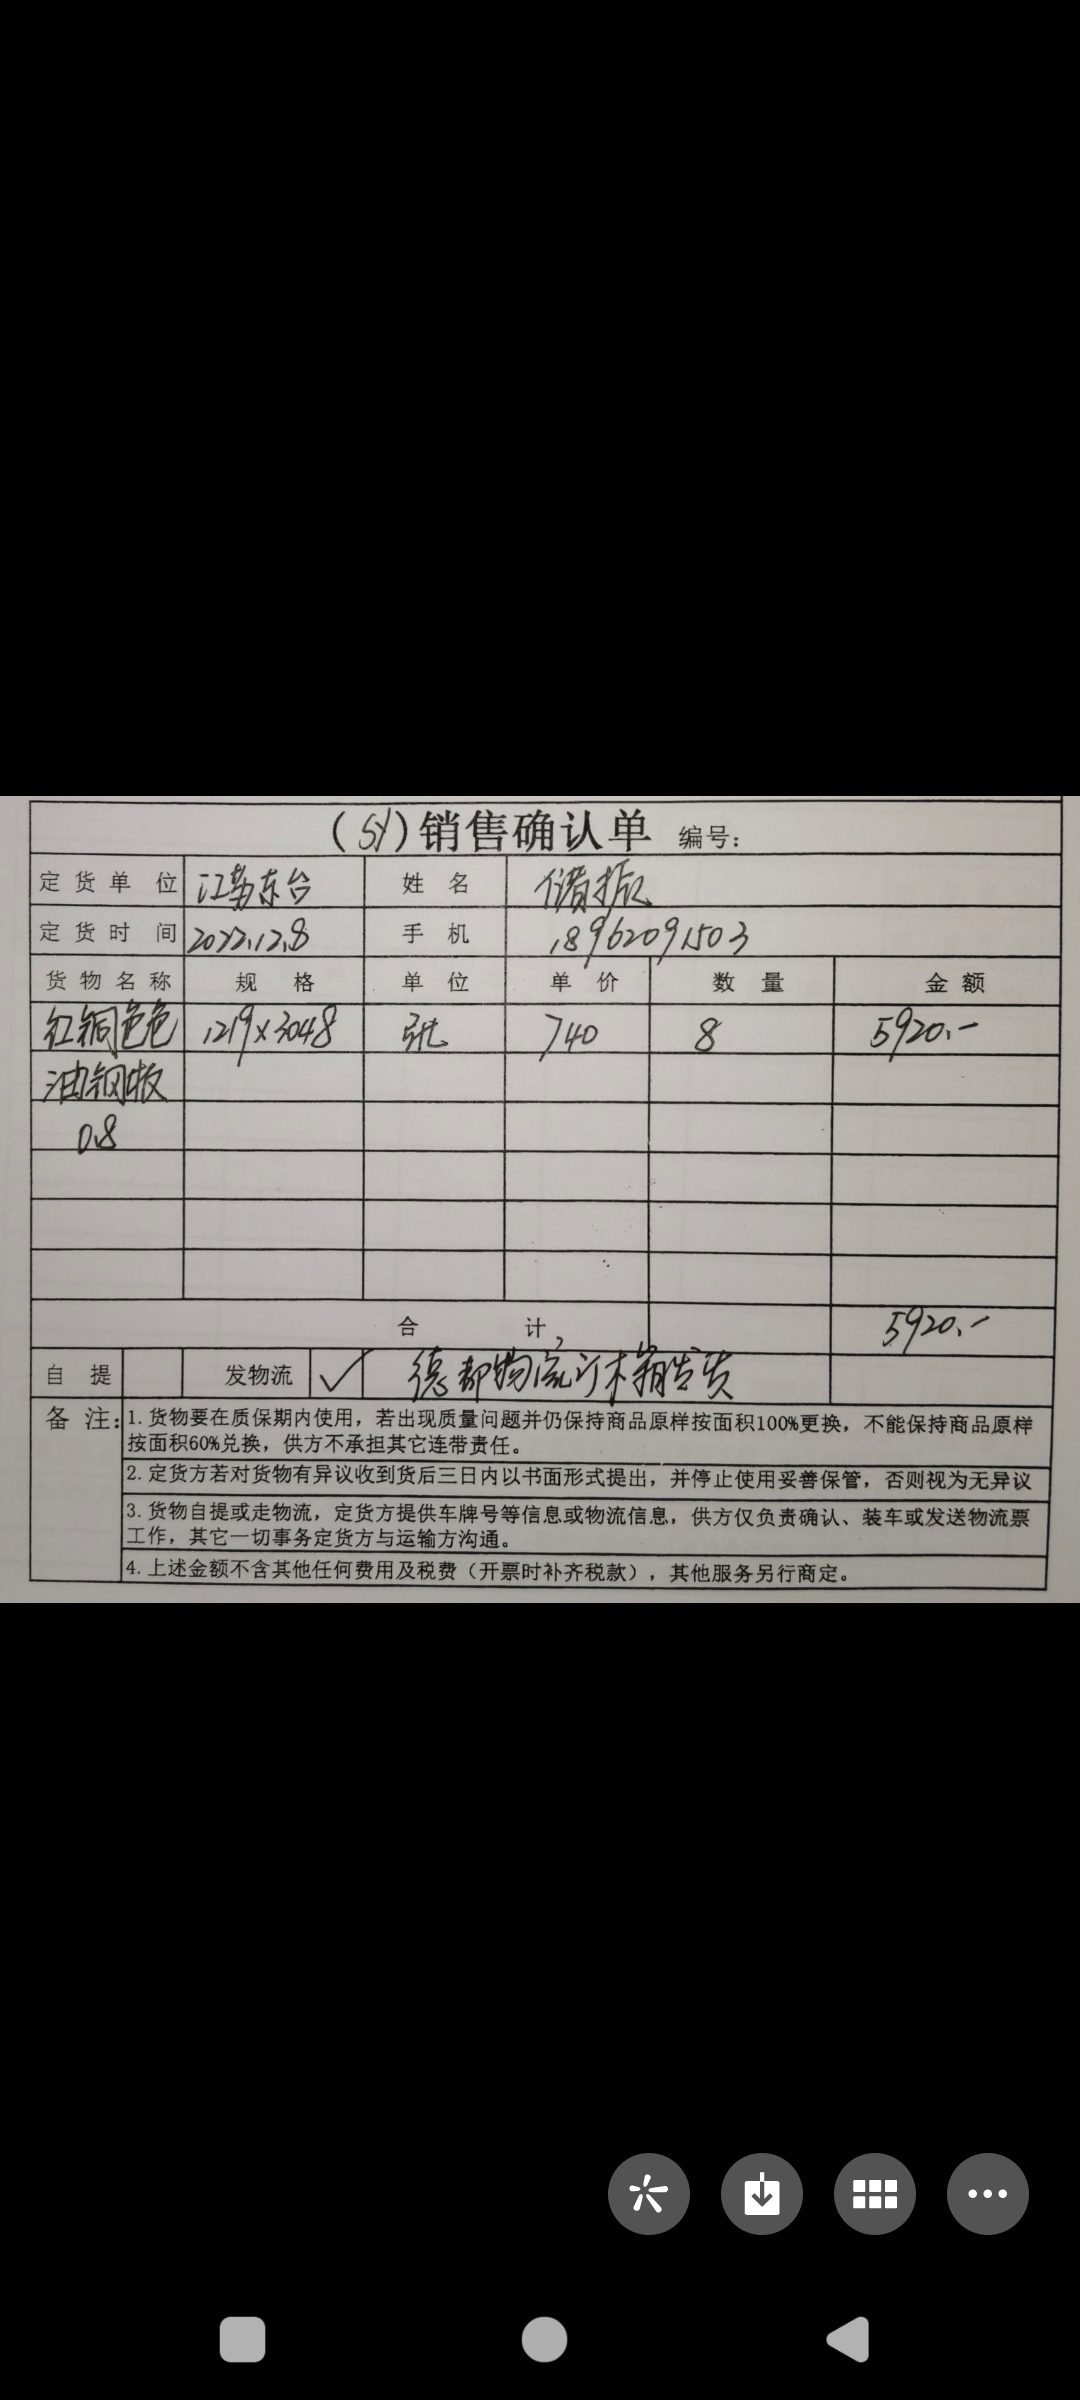 (SY)销售确认单 编号：
定货单位 江苏东台 姓名 储振
定货时间 2022.12.8 手机 18962091503
货物名称 规格 单位 单价 数量 金额
红铜色色 1219×3048 张 740 8 5920.-
油钢板
0.8
合计 5920.-
自提 发物流 ✓ 德邦物流 订木箱发货
备注：1.货物要在质保期内使用，若出现质量问题并仍保持商品原样按面积100%更换，不能保持商品原样
按面积60%兑换，供方不承担其它连带责任。
2.定货方若对货物有异议收到货后三日内以书面形式提出，并停止使用妥善保管，否则视为无异议
3.货物自提或走物流，定货方提供车牌号等信息或物流信息，供方仅负责确认、装车或发送物流票
工作，其它一切事务定货方与运输方沟通。
4.上述金额不含其他任何费用及税费（开票时补齐税款），其他服务另行商定。